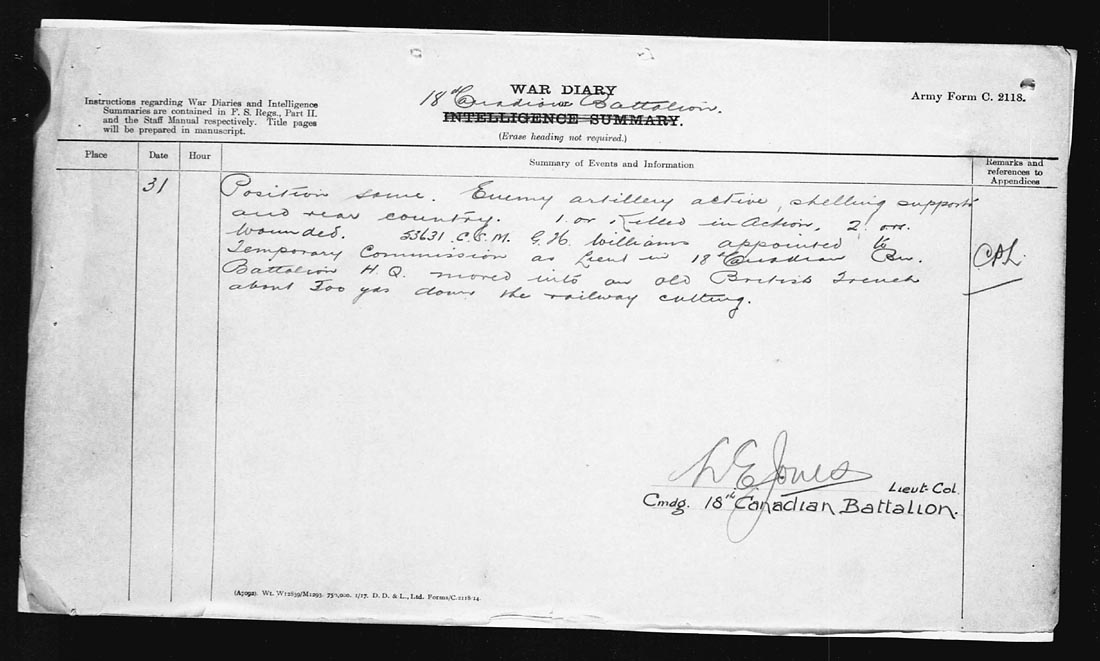 WAR DIARY
18th Canadian or Battalion.
INTELLIGENCE SUMMARY.
(Erase heading not required.)
Instructions regarding War Diaries and Intelligence
Summaries are contained in F. S. Regs., Part II.
and the Staff Manual respectively. Title pages
will be prepared in manuscript.
Army Form C. 2118.
Place Date Hour Summary of Events and Information Remarks and references to Appendices
31 Position same. Enemy artillery active, shelling supports
and rear country. 1 or Killed in Action, 2 ors.
Wounded. 53631 C.S.M. G.H. Williams appointed to
Temporary Commission as Lieut in 18th Canadian Bn.
Battalion H.Q. moved into an old British Trench
about 300 yds down the railway cutting.
L E Jones Lieut-Col.
Cmdg. 18th Canadian Battalion.
(A7092). Wt. W12839/M1293. 750,000. 1/17. D. D. & L., Ltd. Forms/C.2118/14.